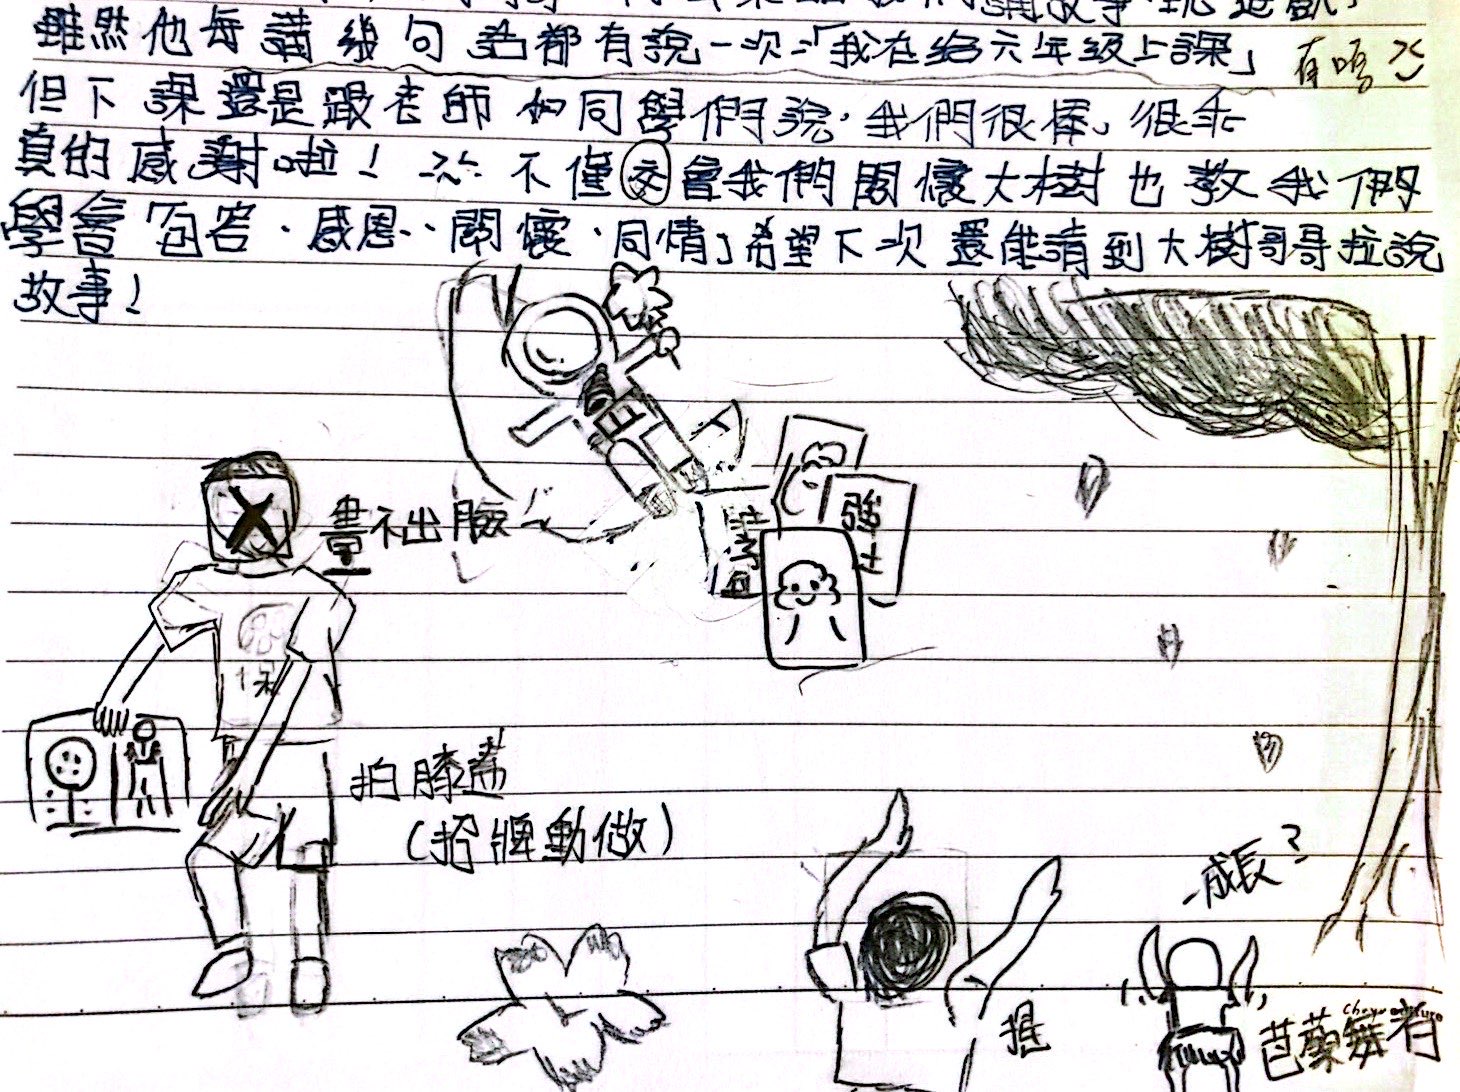 講故事
雖然他每講幾句話都有說一次:「我在給六年級上課」 有嗎
但下課還是跟老師和同學們說,我們很棒、很乖
真的感謝啦! 不僅交會我們關懷大樹也教我們
學會「包容、感恩、關懷、同情」希望下次還能請到大樹哥哥拉說
故事!
畫不出臉
強
拍膝蓋
(招牌動做)
成長?
芭蕾舞者